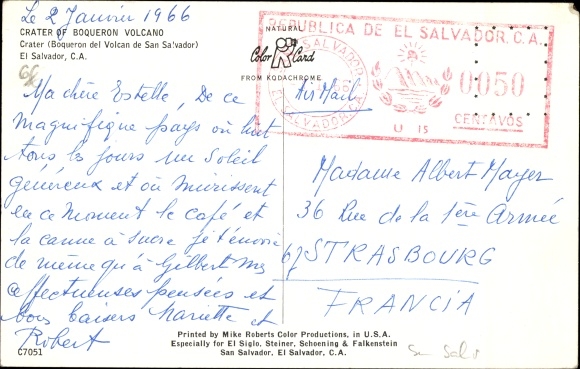 Le 2 Janvier 1966
CRATER OF BOQUERON VOLCANO
Crater (Boqueron del Volcan de San Salvador)
El Salvador, C.A.
Ma chère Estelle, De ce
magnifique pays où luit
tous les jours un Soleil
généreux et où mûrissent
en ce moment le café et
la canne à sucre je t'envoie
de même qu'à Gilbert mes
affectueuses pensées et
bons baisers Mariette et
Robert
C7051
NATURAL
Color Card
FROM KODACHROME
REPUBLICA DE EL SALVADOR. C.A.
SAN SALVADOR
EL SALVADOR, C.A.
0050
CENTAVOS
U 15
Air Mail
Madame Albert Mayer
36 Rue de la 1ère Armée
67 STRASBOURG
FRANCIA
Printed by Mike Roberts Color Productions, in U.S.A.
Especially for El Siglo, Steiner, Schoening & Falkenstein
San Salvador, El Salvador, C.A.